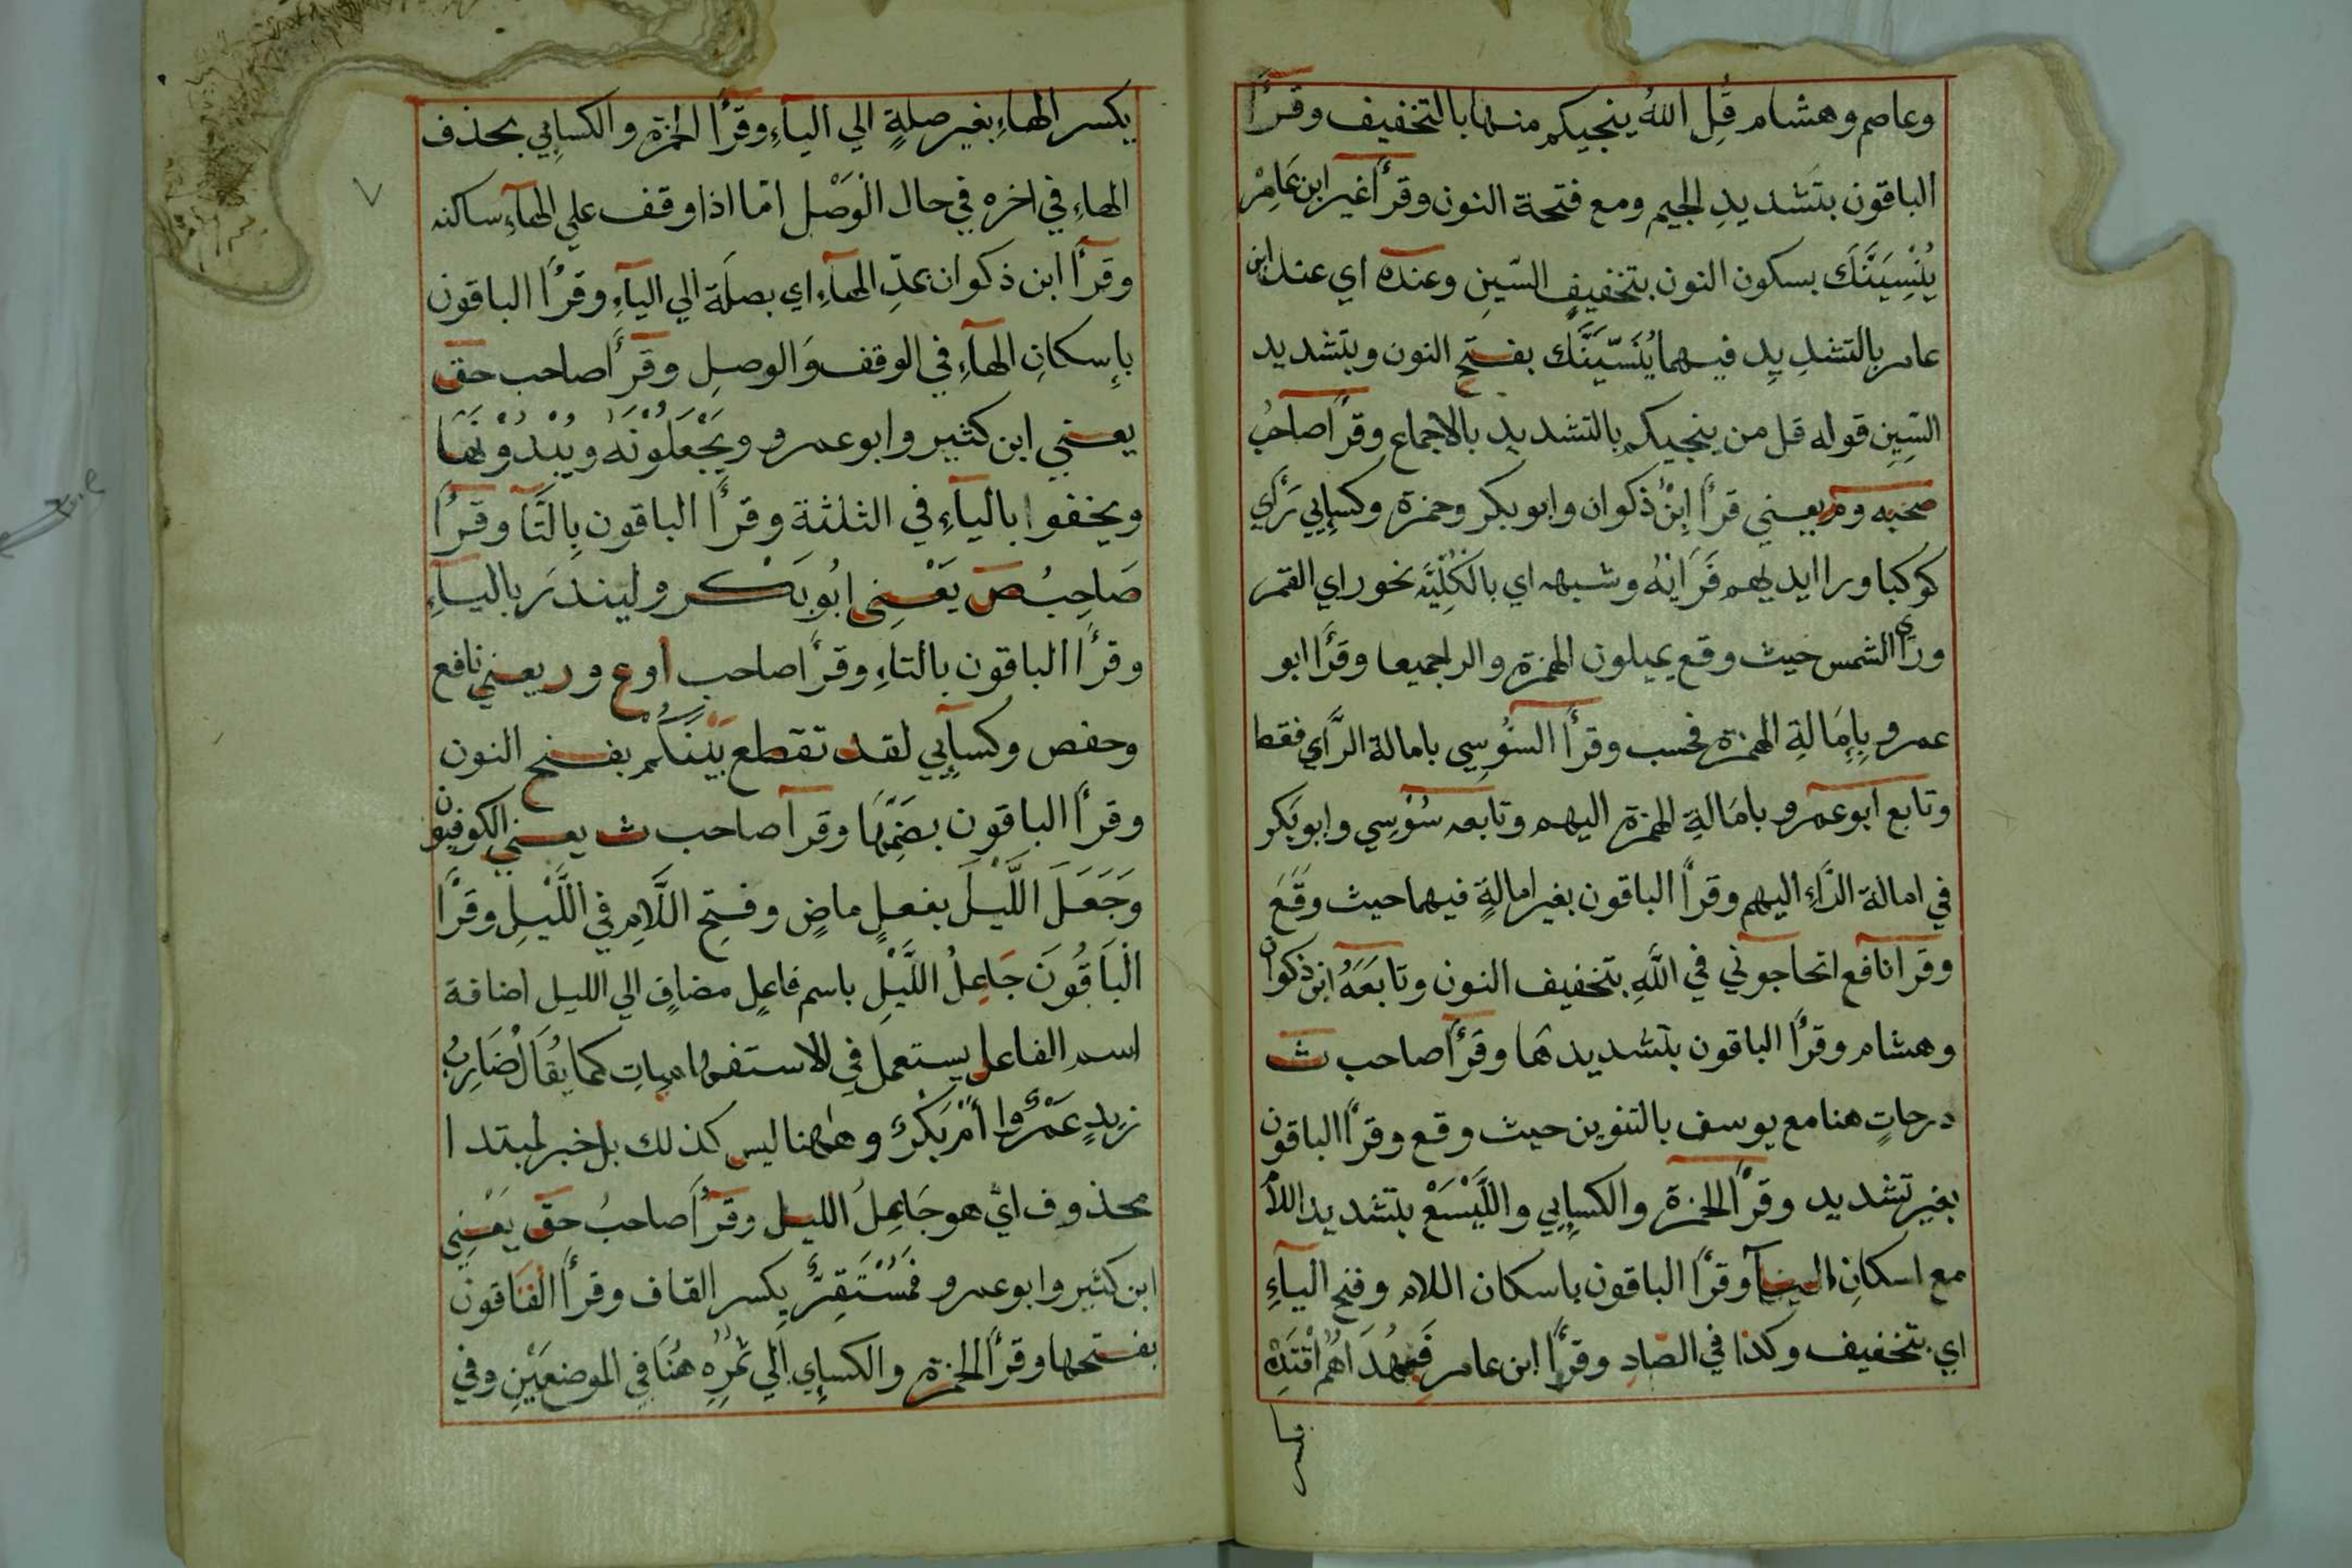 وعاصم وهشام قُلِ اللهُ ينجيكم منها بالتخفيف وقرأ
الباقون بتَشديدِ الجيم ومع فتحة النون وقرأ غير ابن عَامِرْ
يُنْسِيَنَّكَ بسكون النون بتخفيفِ السّينِ وعنده اي عند ابن
عامر بالتشدِيدِ فيهما يُنَسّيَنَّكَ بفتح النون وبتشديد
السّينِ قوله قل من ينجيكم بالتشديد بالاجماع وقرأ صاحبُ
صحبه وم يعني قرأ ابنْ ذكوان وابو بكر وحمزة وكسايِي رَأي
كوكبا ورا ايديهم فَرَانهُ وشبهه اي بالكُلِيَّه نحو راي القمر
ورَأى الشمس حيث وقع يميلون الهمزة والرا جميعا وقرَأ ابو
عمرو بِاِمَالةِ الهمزة فحسب وقرأ السُوسِي بامالة الرَّأي فقط
وتابع ابو عمرو بامَالةِ الهمزة اليهم وتابعه سُوسِي وابو بَكر
في امالة الرَّاءِ اليهم وقرأ الباقون بغير امالةٍ فيهما حيث وقَعَ
وقرا نافع اتحاجوني في اللَّهِ بتخفيف النون وتابَعَهُ ابن ذكوان
وهشام وقرأ الباقون بتشديدهَا وقرَأ صاحب ث
درجاتٍ هنا مع يوسف بالتنوين حيث وقع وقرأ الباقون
بغير تشديد وقرأ الحمزة والكسايِي واللَّيْسَعْ بتشديد اللا
مع اسكانِ اليآ وقرأ الباقون باسكان اللام وفتح اليآءِ
اي بتخفيف وكذا في الصّادِ وقرأ ابن عامر فَبِهُدَاهُمُ اقْتَدِهْ
يكسر الهاءِ بغير صلةٍ الي اليآءِ وقرأ الحمزة والكسايِي بحذف
الهاءِ في اخره في حال الْوَصْل امّا اذا وقف علي الهآءِ ساكنه
وقرأ ابن ذكوان بمدِّ الهآءِ اي بصلَة الي اليآءِ وقرُأ الباقون
بإِسكانِ الهآءِ في الوقف وَالوصلِ وقرأ صاحب حق
يعني ابن كثير وابو عمرو ويَجْعَلُونَهُ ويُبْدُوْنَهَا
ويخفوا باليآءِ في الثلثة وقرأ الباقون بِالتَّا وقرأ
صَاحِبُ ص يَعْنِي ابُو بَكْر ولِينذرَ باليآءِ
وقرأ الباقون بالتاءِ وقرأ صاحب ا وع ور يعني نافع
وحفص وكسايِي لقد تقطع بَيْنَكُمْ بفتح النون
وقرأ الباقون بضَمِّهَا وقرأ صاحب ث يعني الكوفيون
وَجَعَلَ اللَّيْلَ بفعلٍ ماضٍ وفتحِ اللَّامِ في اللَّيْلِ وقرأ
الْبَاقُونَ جَاعِلُ اللَّيْلِ باسم فاعلٍ مضافٍ الي الليل اضافة
اسم الفاعل يستعمل في الاستفهاميات كما يُقَالُ ضَارِبُ
زيدٍ عَمْرٌوا أمْ بَكْرٌ وهاهنا ليس كذلك بل خبر لمبتدا
محذوف ايْ هو جَاعِلُ الليل وقرأ صاحبُ حق يَعْنِي
ابن كثير وابو عمرو فَمُسْتَقِرٌّ بِكسر القاف وقرأ الباقون
بفتحها وقرأ الحمزة والكسايِي الي ثُمُرِهِ هُنَا في الموضعَيْنِ وفي